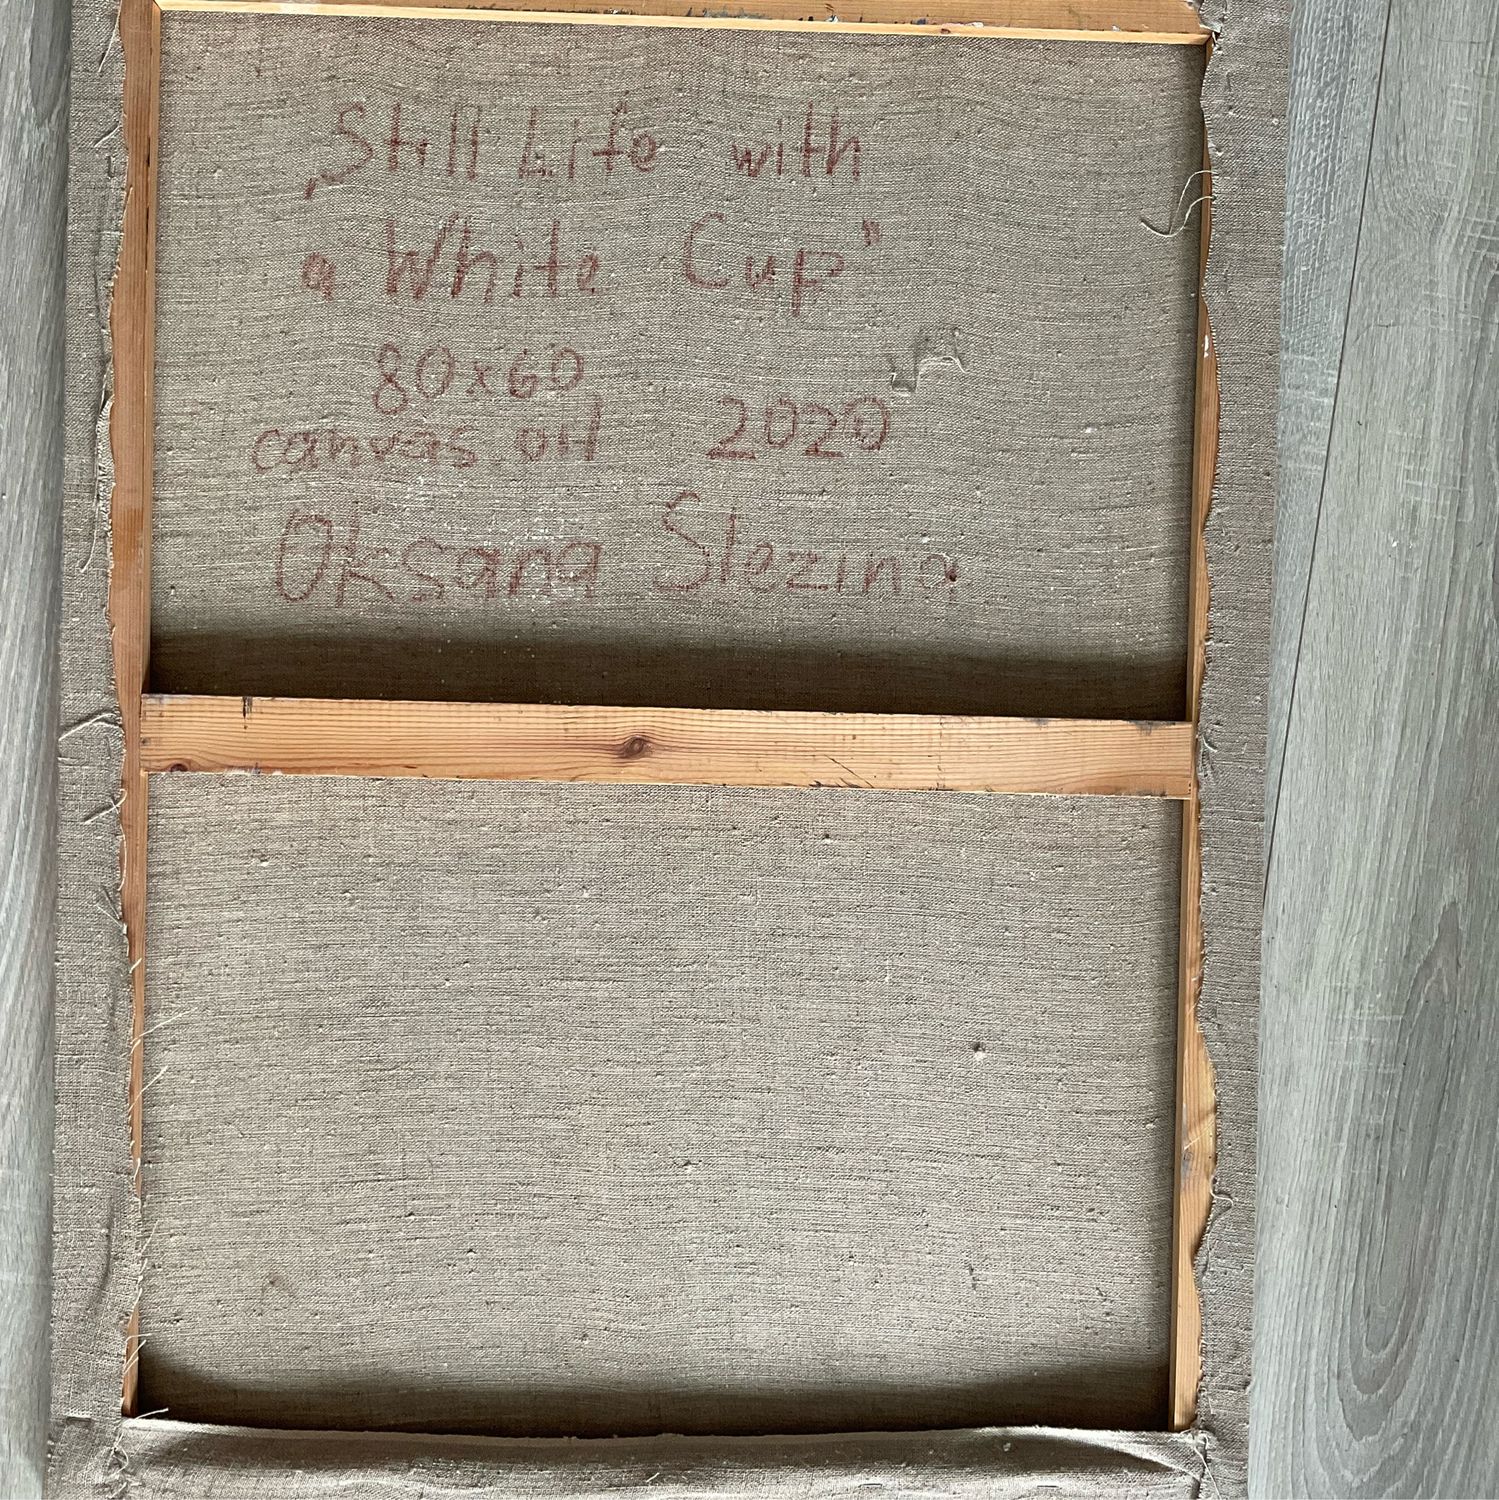 „Still Life with
a White Cup"
80x60
canvas, oil 2020
Oksana Slezina